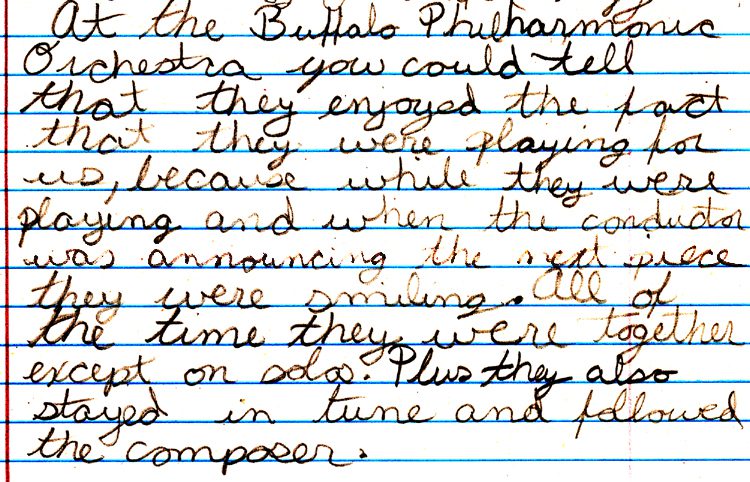 At the Buffalo Philharmonic
Orchestra you could tell
that they enjoyed the fact
that they were playing for
us, because while they were
playing and when the conductor
was announcing the next piece
they were smiling. All of
the time they were together
except on solos. Plus they also
stayed in tune and followed
the composer.